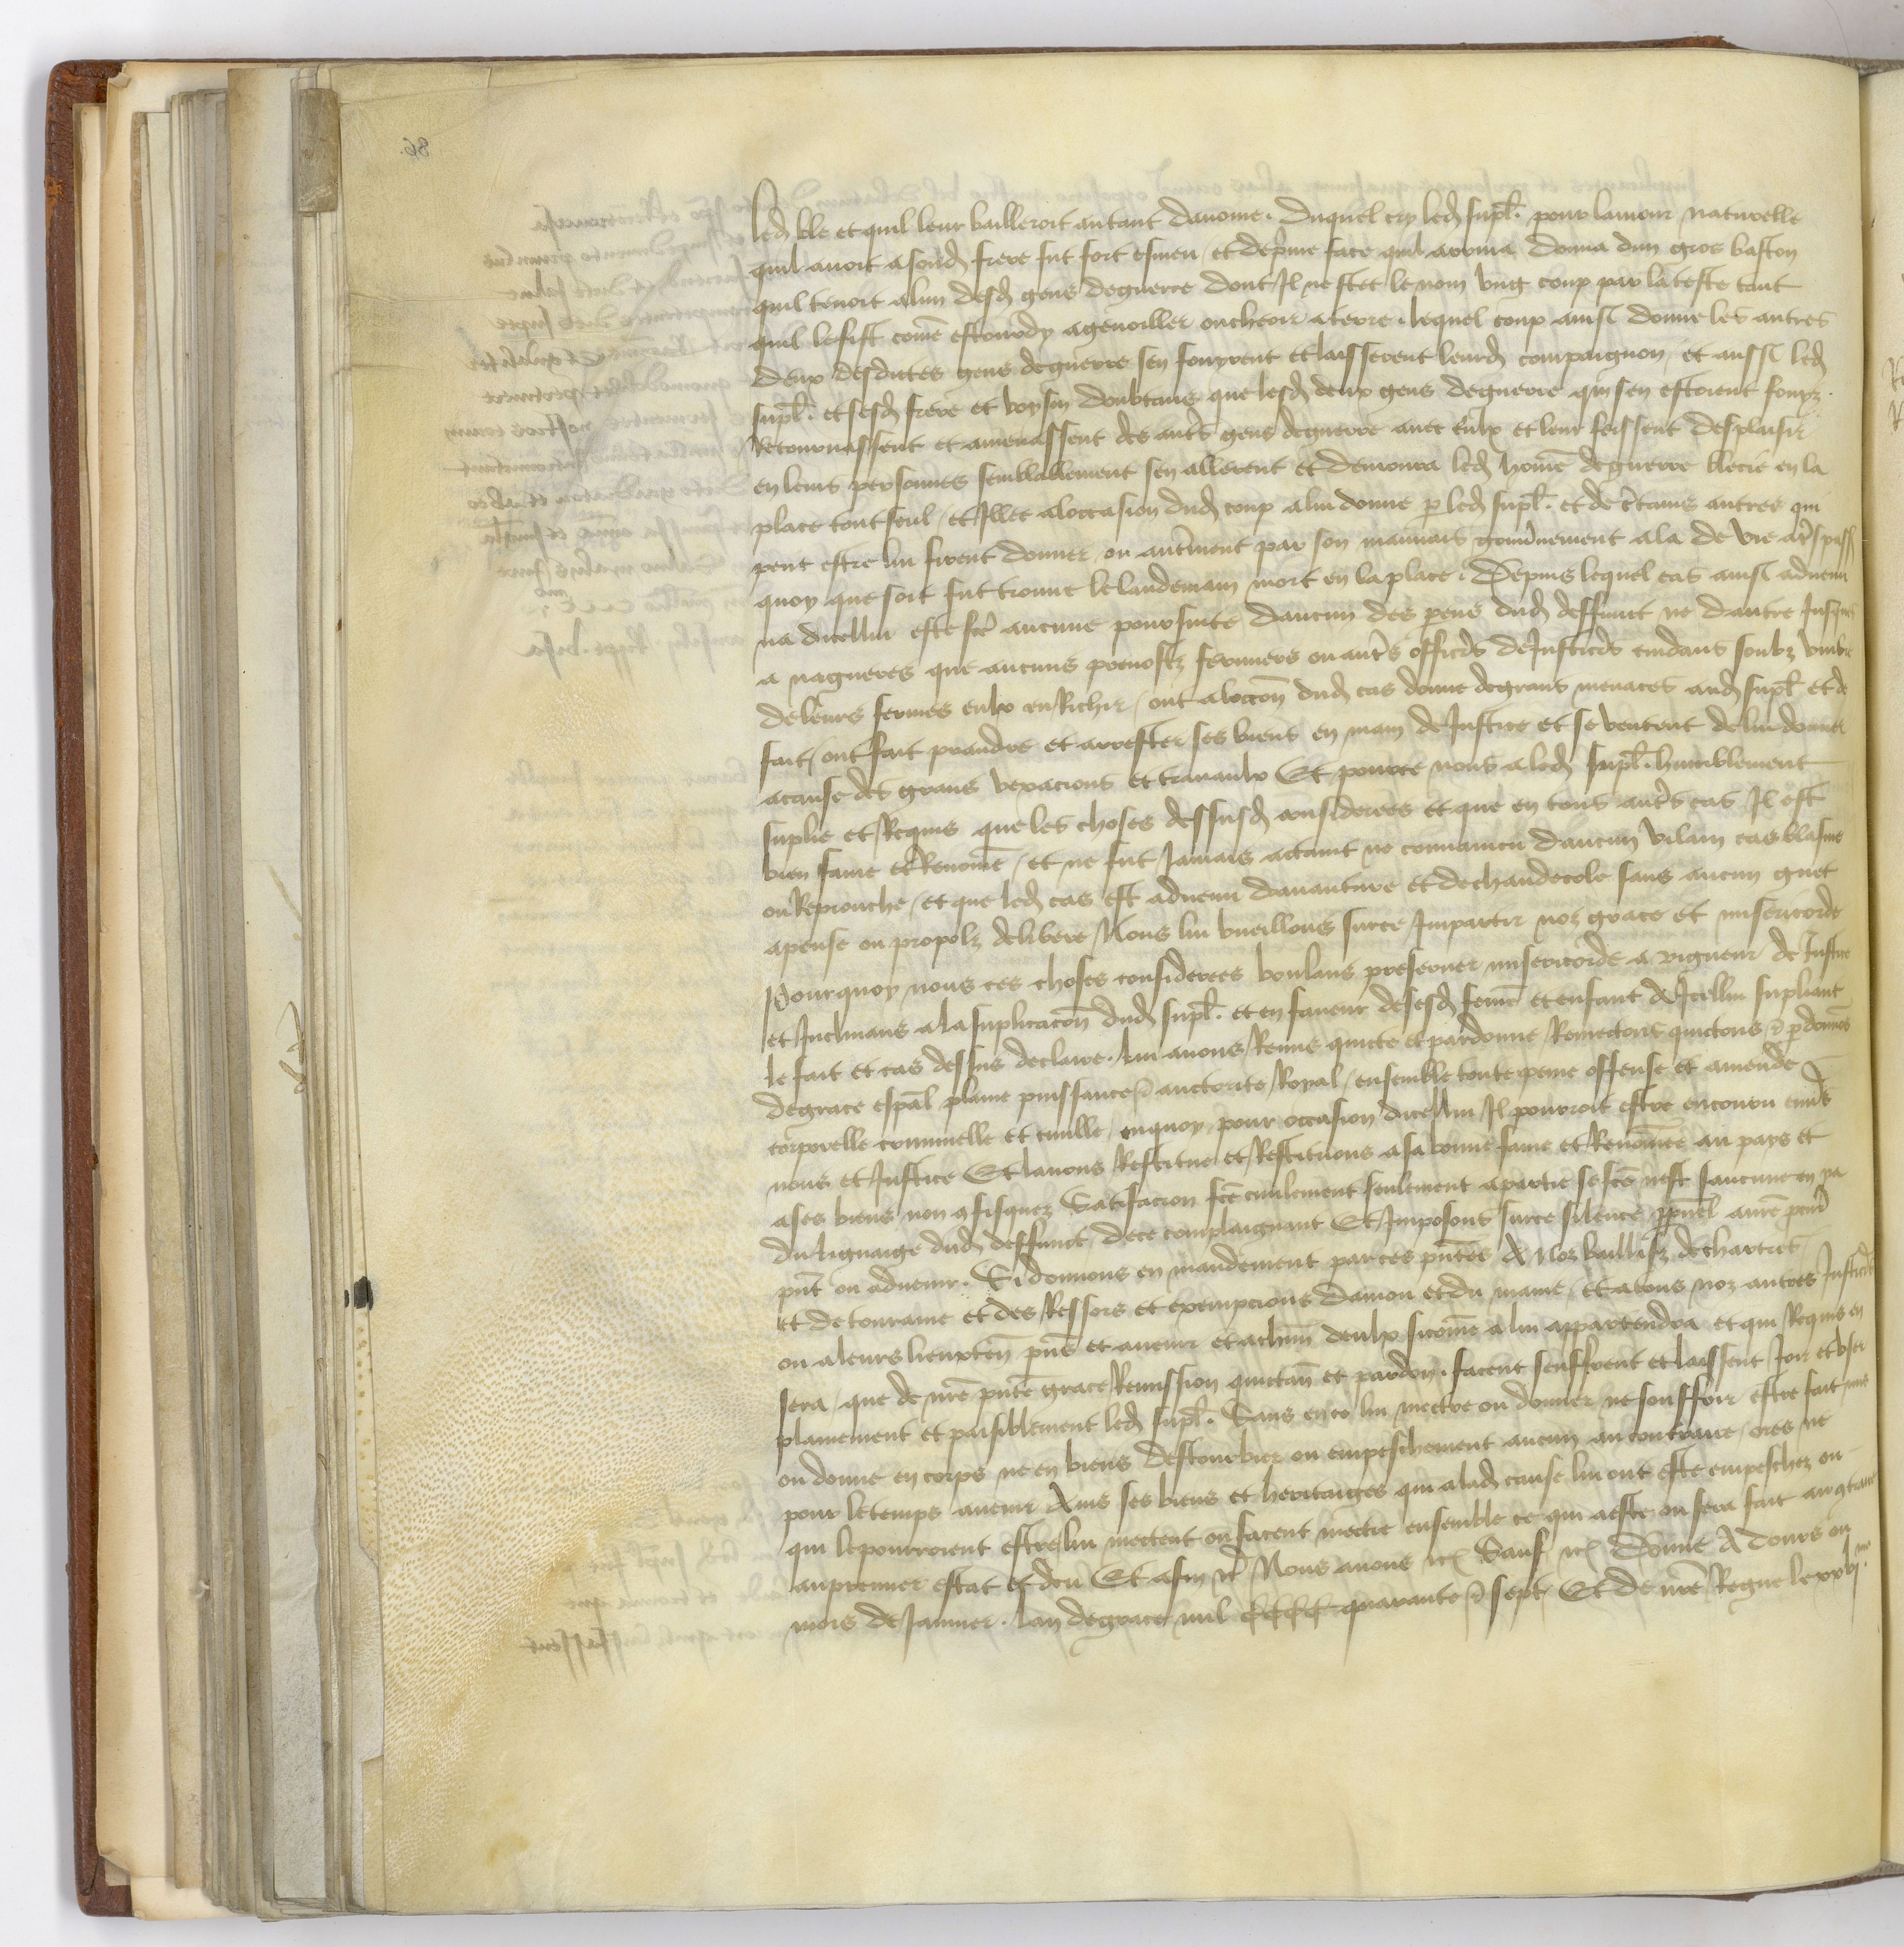 led ble et quil leur bailleroit autant davoine. Duquel cry led supl. pour lamour naturelle
quil avoit a sond frere fut fort esmeu et de prime face quil arriva donna dun gros baston
quil tenoit a lun desd gens de guerre dont Il ne scet le nom ung coup par la teste tant
quil le fist come estourdy agenoiller ou cheoir a terre. lequel coup ainsi donne les autres
deux desdictes gens de guerre sen fouyrent et laisserent leurd compaignon et aussi led
supl. et sesd frere et voysin doubtans que lesd deux gens de guerre qui sen estoient fouyz
Retournassent et amenassent des autres gens de guerre avec eulx et leur feissent desplaisir
en leurs personnes semblablement sen allerent et demoura led home de guerre blecie en la
place tout seul et Illec a loccasion dud coup a lui donne par led supl. et de certains autres qui
peut estre lui firent donner ou autrement par son mauvais gouvernement ala de vie a trespass
quoy que soit fut trouve le landemain mort en la place. Depuis lequel cas ainsi advenu
na dicellui este fce aucune poursuite daucun des parens dud deffunct ne dautre Jusques
a nagueres que aucuns prevostz fermiers ou autres officiers de Justice cuidans soubz umbre
de leurs fermes eulx enRichir ont a loccon dud cas donne de grans menaces aud supl. et de
fait ont fait prandre et arrester ses biens en main de Justice et se ventent de lui donner
a cause des grans vexacions et travaulx Et pource nous a led supl. humblement
suplie et Requis que les choses dessusd considerees et que en tous autres cas Il est
bien fame et Renome et ne fut Jamais actaint ne convaincu daucun vilain cas blasme
ou Reprouche et que led cas est advenu davanture et de chaudecole sans aucun guet
apense ou propolz delibere Nous lui vueillons surce Impartir noz grace et misericorde
Pourquoy nous ces choses considerees voulans preferer misericorde a rigueur de Justice
et Inclinans a la suplicacon dud supl. et en faveur de sesd feme et enfant A Icellui supliant
le fait et cas dessus declaire. lui avons Remis quicte et pardonne Remectons quictons et pardonnons
de grace espal plaine puissance et auctorite Royal ensemble toute peine offense et amende
corporelle criminelle et civille enquoy pour occasion dicellui Il pourroit estre encouru envers
nous et Justice Et lavons Restitue et Restituons a sa bonne fame et Renomee au pays et
a ses biens non confisquez Satisfacion fce civilement seulement a partie se fce nest saucune en ya
du lignaige dud deffunct de ce complaignant Et Imposons surce silence perpetuel a nre procur
pnt ou advenir. Si donnons en mandement par ces pntes A Noz bailliz de chartres
et de touraine et des Ressors et exempcions danjou et du maine et a tous noz autres Justiciers
ou a leurs lieuxten pns et avenir et a chun deulx si come a lui appartendra et qui Requis en
sera que de nre pnte grace Remission quictan et pardon. facent seuffrent et laissent Joir et user
plainement et paisiblement led supl. Sans en ce lui mectre ou donner ne souffrir estre fait mis
ou donne en corps ne en biens destourbier ou empeschement aucun au contraire ores ne
pour le temps avenir Ains ses biens et heritaiges qui a lad cause lui ont este empeschez ou
qui le pourroient estre lui mectent ou facent mectre ensemble ce qui a este ou sera fait au contraire
au premier estat et deu Et afin etc Nous avons etc Sauf etc Donne A Tours ou
mois de Janvier. lan de grace mil cccc quarante et sept Et de nre Regne le xxvi me